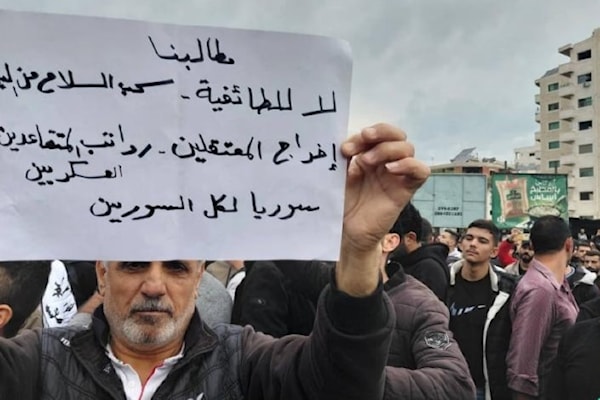 مطالبنا
لا للطائفية - سحب السلاح من
إخراج المعتقلين - رواتب المتقاعدين
العسكريين
سوريا لكل السوريين